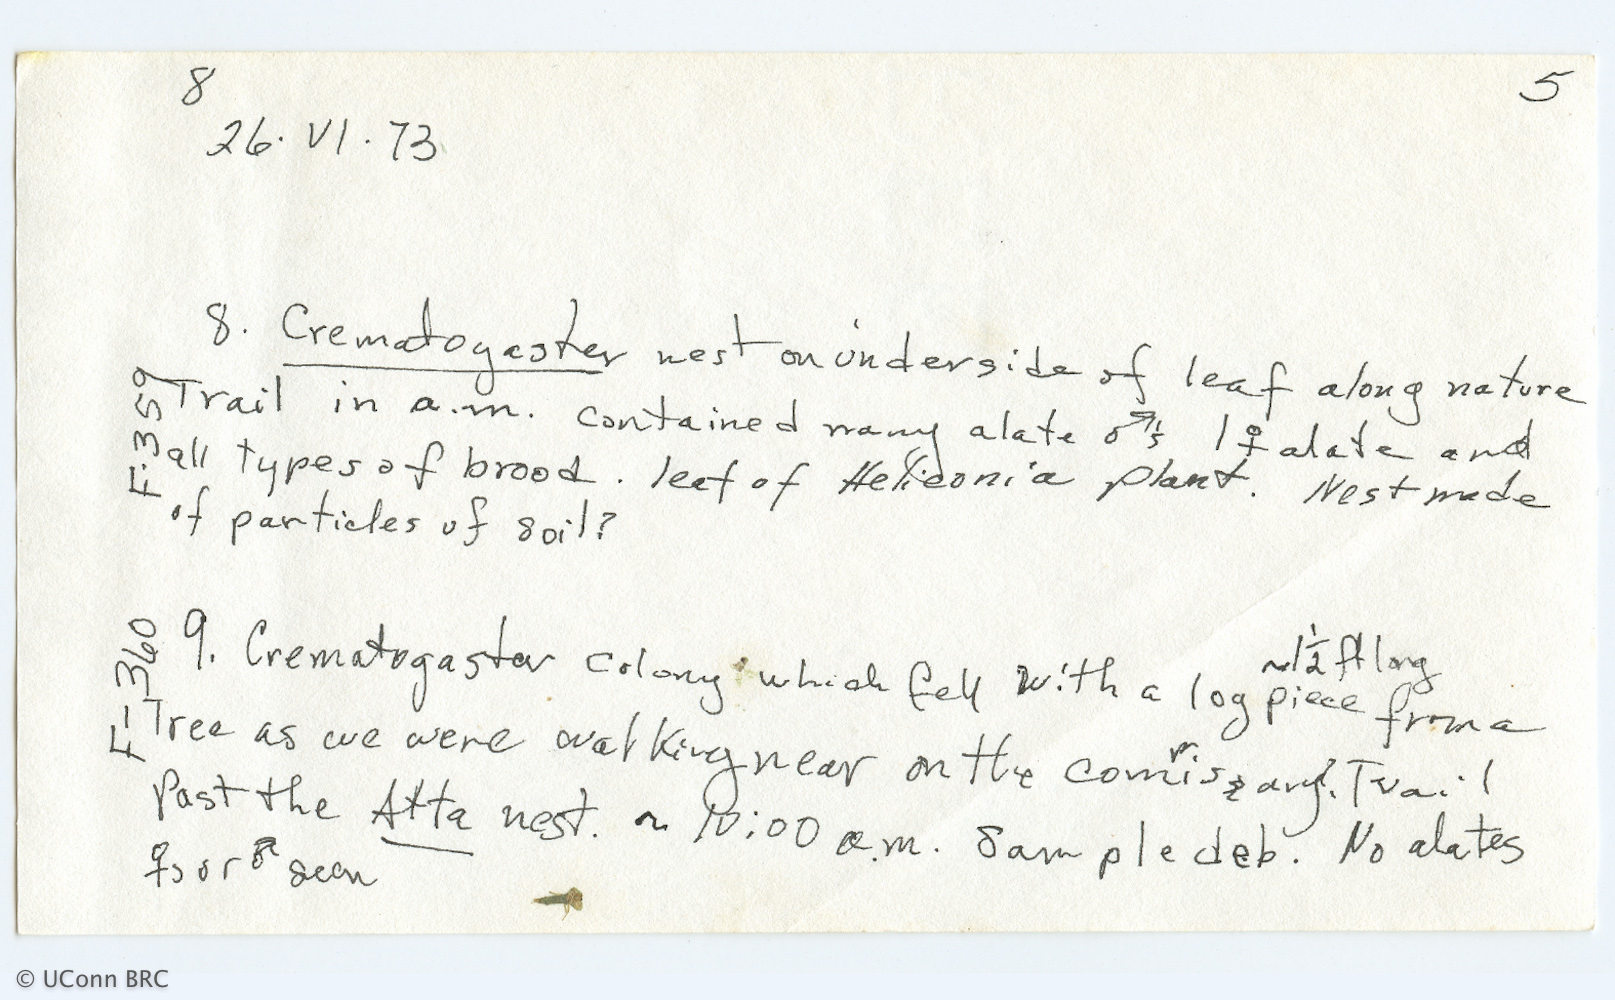 8
5
26. VI. 73
8. Crematogaster nest on underside of leaf along nature
F-359
Trail in a.m. contained many alate ♂'s 1 ♀ alate and
all types of brood. leaf of Heliconia plant. Nest made
of particles of soil?
F-360
9. Crematogaster colony which fell with a log piece from a
~1½ ft long
Tree as we were walking near on the commissary Trail
Past the Atta nest. ~ 10:00 a.m. Sample deb. No alates
♀s or ♂ seen
© UConn BRC